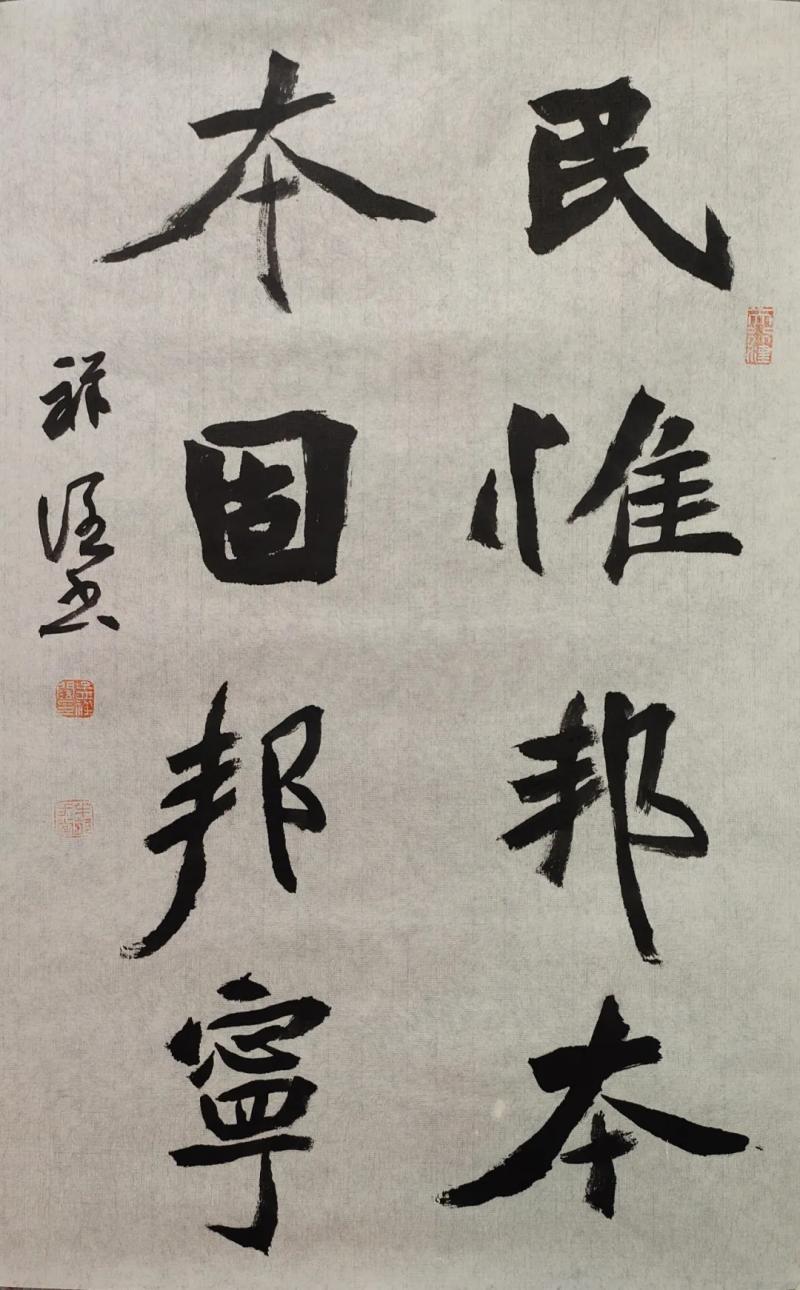 民惟邦本
本固邦寧
祥
書